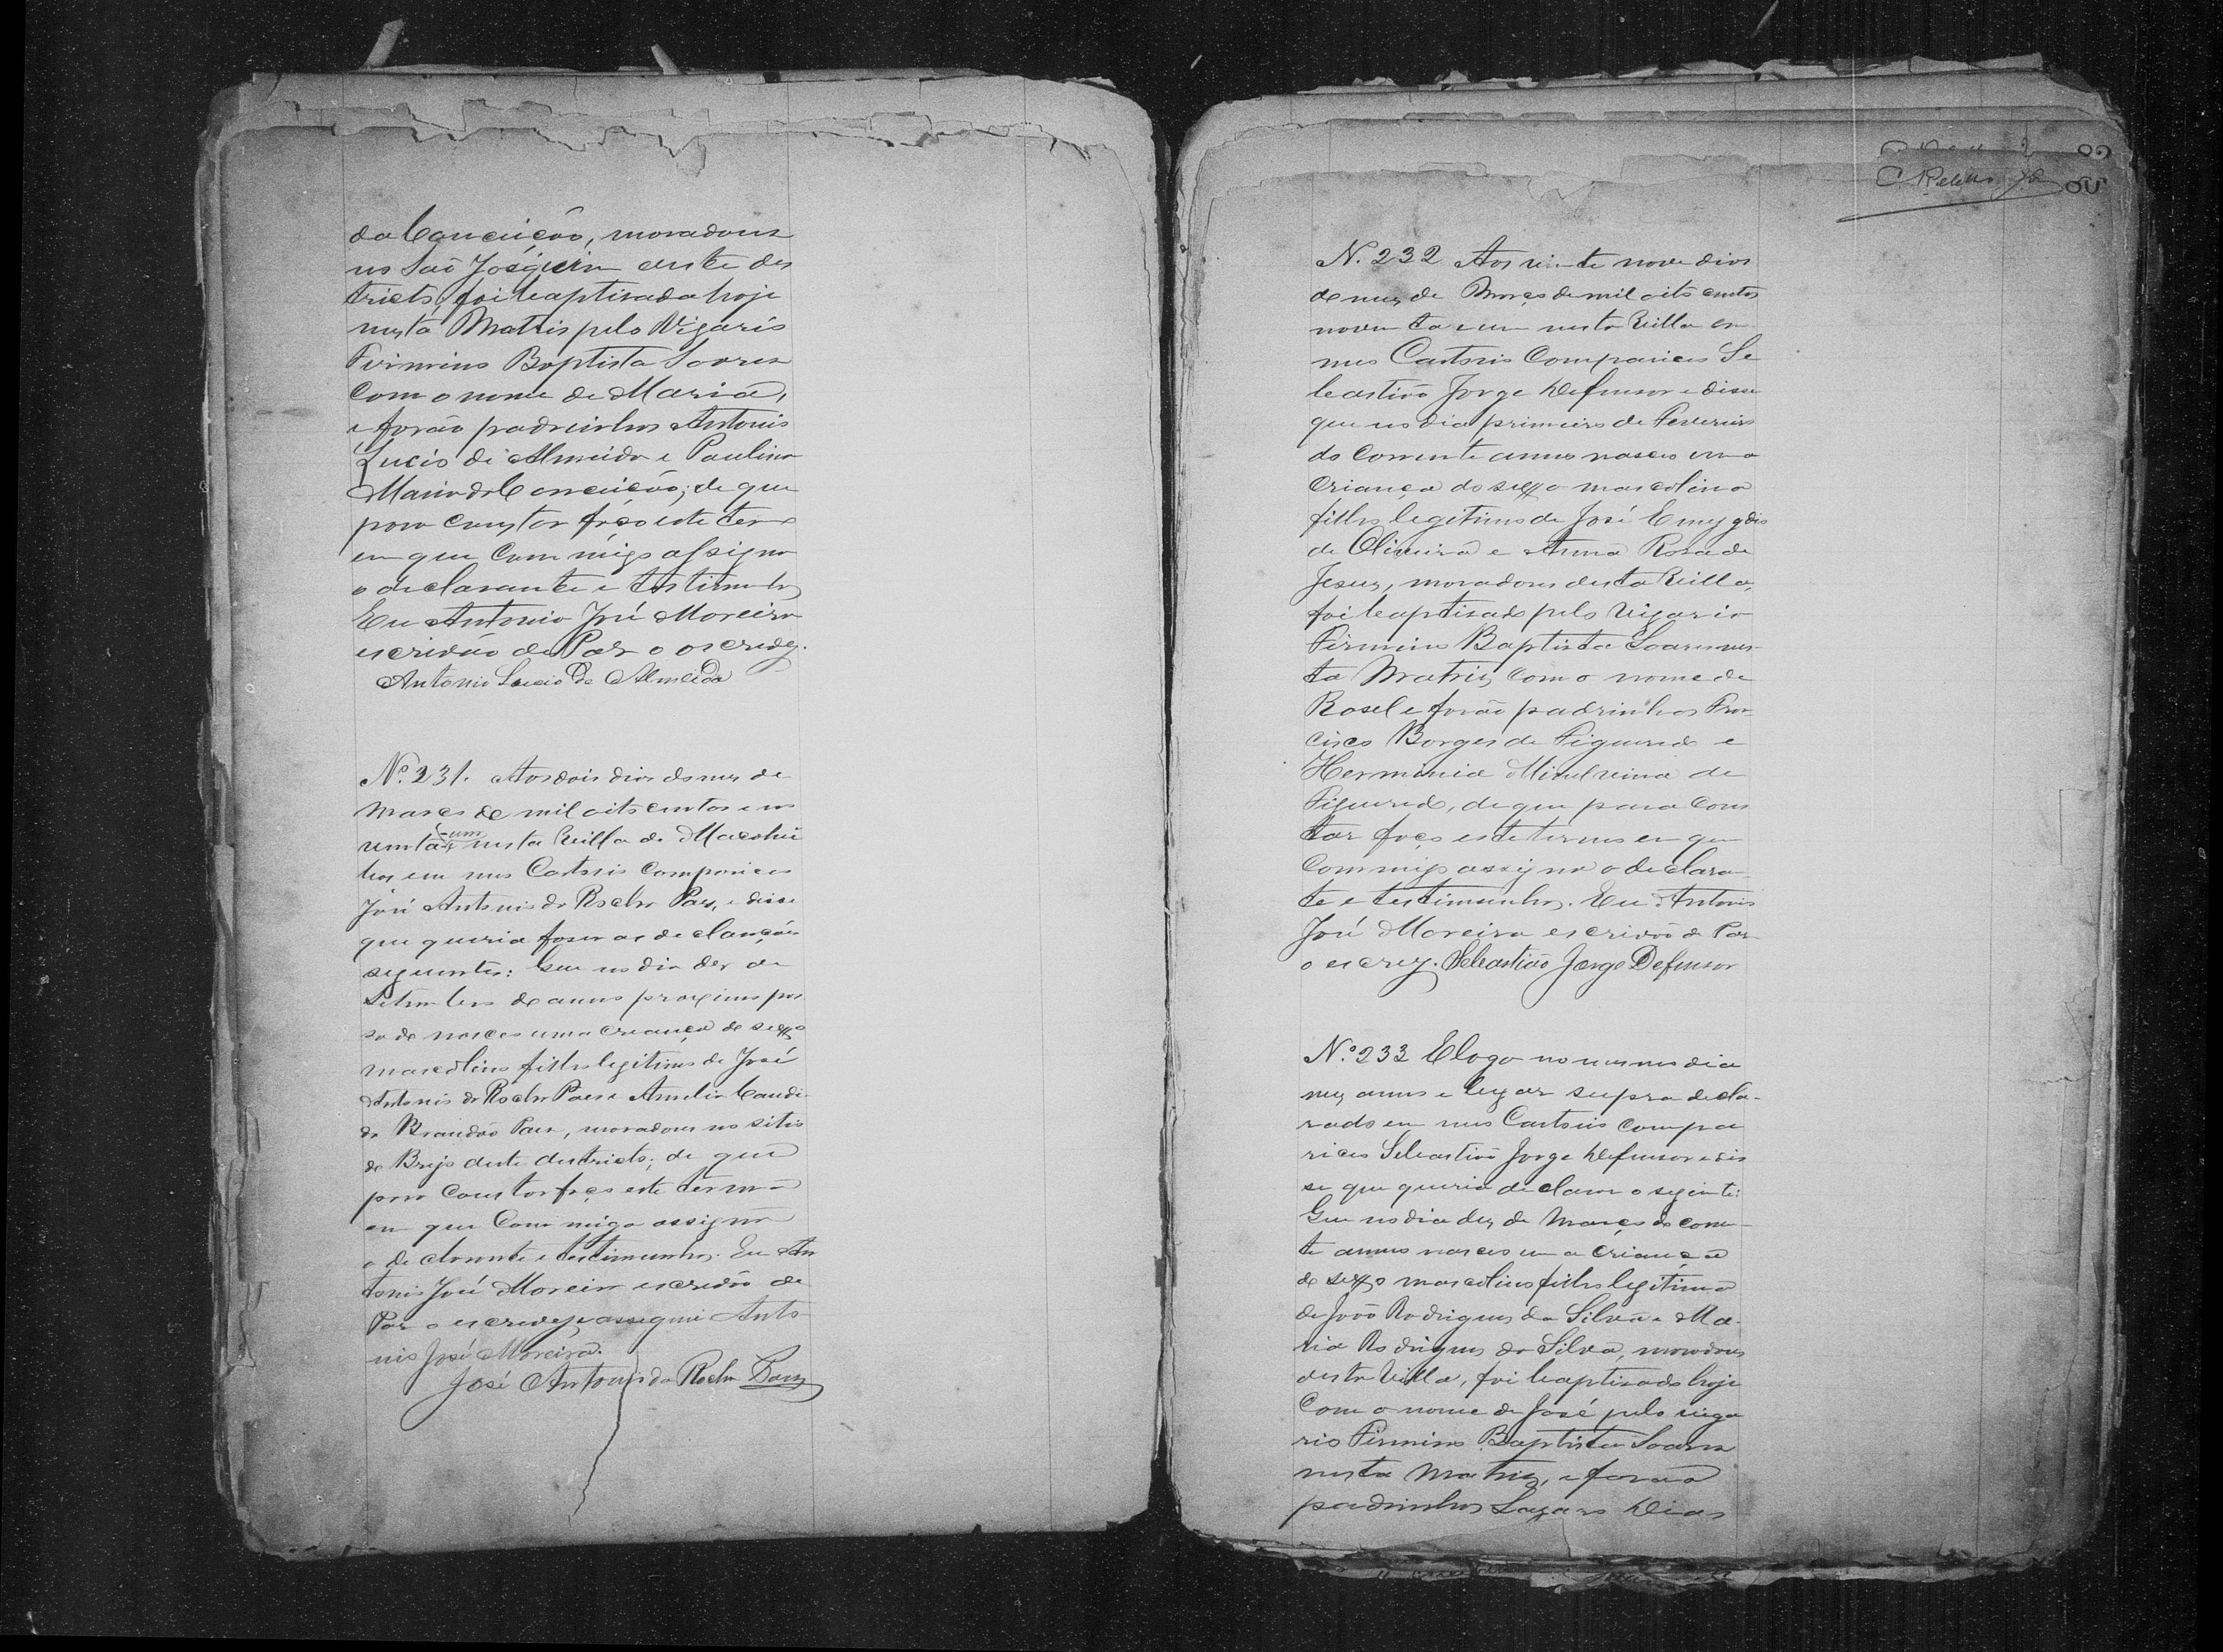 da Conceição, moradores
no São Joaquim deste des
tricto, foi baptisada hoje
nesta Matris pelo Vigario
Firmino Baptista Soares
com o nome de Maria,
e forão padrinhos Antonio
Lucio de Almeida e Paulina
Maria da Conceição; de que
para constar faço este termo
em que commigo assigna
o declarante e testimunhas
Eu Antonio José Moreira
escrivão de Paz o escrevy.
Antonio Lucio de Almeida
Nº 231. Aos dois dias do mez de
Março de mil oito centos e no
venta e um nesta Villa de Macahu
bas em meu Cartorio compareceo
José Antonio da Rocha Paes, e disse
que queria faser as declarações
seguintes: Que no dia dez de
Setembro de anno proximo pas
sado nasceo uma criança de sexo
mascolino filho legitimo de José
Antonio da Rocha Paes e Amelia Candi-
da Brandão Paes, moradores no sitio
do Brejo deste destricto; de que
para constar faço este termo
em que commigo assigna
o declarante e testimunhas. Eu An
tonio José Moreira escrivão de
Paz o escrevy e assignei Anto
nio José Moreira.
José Antonio da Rocha Paes
C Rebello
N. 232 Aos vinte nove dias
do mez de Março de mil oito centos
noventa e um nesta Villa em
meu Cartorio compareceo Se
bastião Jorge Defensor e disse
que no dia primeiro de Fevereiro
do corrente anno nasceo uma
criança do sexo mascolino
filho legitimo de José Emygdio
de Oliveira e Anna Rosa de
Jesus, moradores desta Villa,
foi baptisado pelo Vigario
Firmino Baptista Soares nes-
ta Matriz com o nome de
Rosel e forão padrinhos Fran
cisco Borges de Figueredo e
Herminia Minelvina de
Figueredo, de que para cons
tar faço este termo em que
commigo assigna o declaran
te e testimunhas. Eu Antonio
José Moreira escrivão de Paz
o escrevy. Sebastião Jorge Defensor
N.º 233 E logo no mesmo dia
mez anno e lugar supra decla-
rado em meu Cartorio compa
riceo Sebastião Jorge Defensor e dis
se que queria declarar o seginte:
Que no dia dez de Março do corren-
te anno nasceo uma criança
de sexo mascolino filho legitimo
de João Rodrigues da Silva e Ma-
ria Rodrigues da Silva, moradores
desta Villa, foi baptisado hoje
com o nome de José pelo viga
rio Firmino Baptista Soares
nesta Matriz, e forão
padrinhos Lazaro Dias